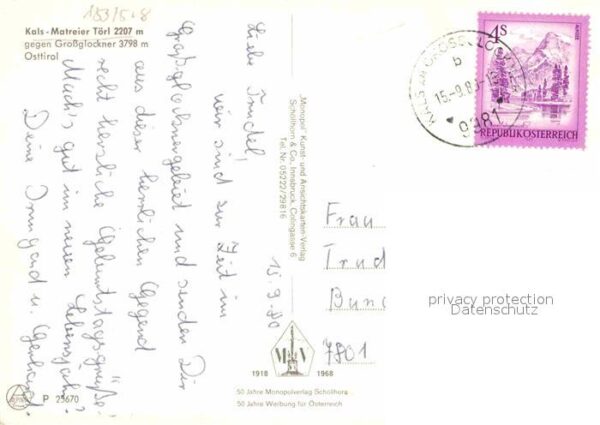 153/5-8
Kals - Matreier Törl 2207 m
gegen Großglockner 3798 m
Osttirol
15.9.80
Liebe Trudel,
wir sind zur Zeit im
Großglocknergebiet und senden Dir
aus dieser herrlichen Gegend
recht herzliche Geburtstagsgrüße.
Mach's gut im neuen Lebensjahr!
Deine Irmgard u.
"Monopol" Kunst- und Ansichtskarten-Verlag
Schöllhorn & Co. Innsbruck, Colingasse 6
Tel. Nr. 05222/29816
KALS AM GROSSGLOCKNER
b
15.-9.80-15
9981
4S
ALMSEE
REPUBLIK ÖSTERREICH
Frau
Trud
Bun
7801
privacy protection
Datenschutz
M V
1918 1968
50 Jahre Monopolverlag Schöllhorn
50 Jahre Werbung für Österreich
P 25670